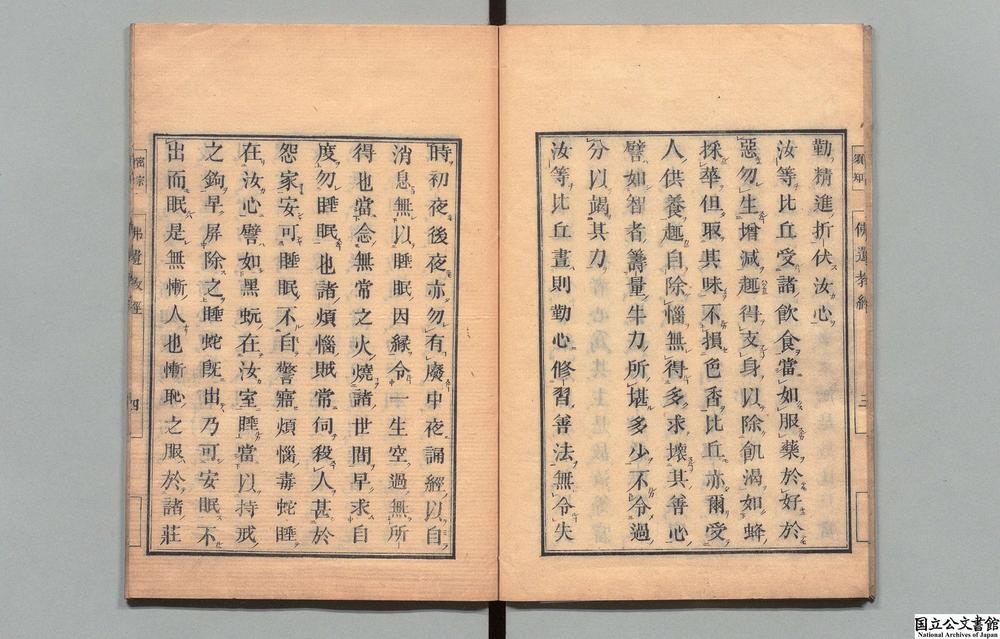 勤精進折伏汝心
汝等比丘受諸飲食當如服藥於好於
惡勿生增減趣得支身以除飢渴如蜂
採華但取其味不損色香比丘亦爾受
人供養趣自除惱無得多求壞其善心
譬如智者籌量牛力所堪多少不令過
分以竭其力
汝等比丘晝則勤心修習善法無令失
時初夜後夜亦勿有廢中夜誦經以自
消息無以睡眠因緣令一生空過無所
得也當念無常之火燒諸世間早求自
度勿睡眠也諸煩惱賊常伺殺人甚於
怨家安可睡眠不自警寤煩惱毒蛇睡
在汝心譬如黑蚖在汝室睡當以持戒
之鉤早屏除之睡蛇既出乃可安眠不
出而眠是無慚人也慚恥之服於諸莊
佛遺教經
三
四
国立公文書館
National Archives of Japan